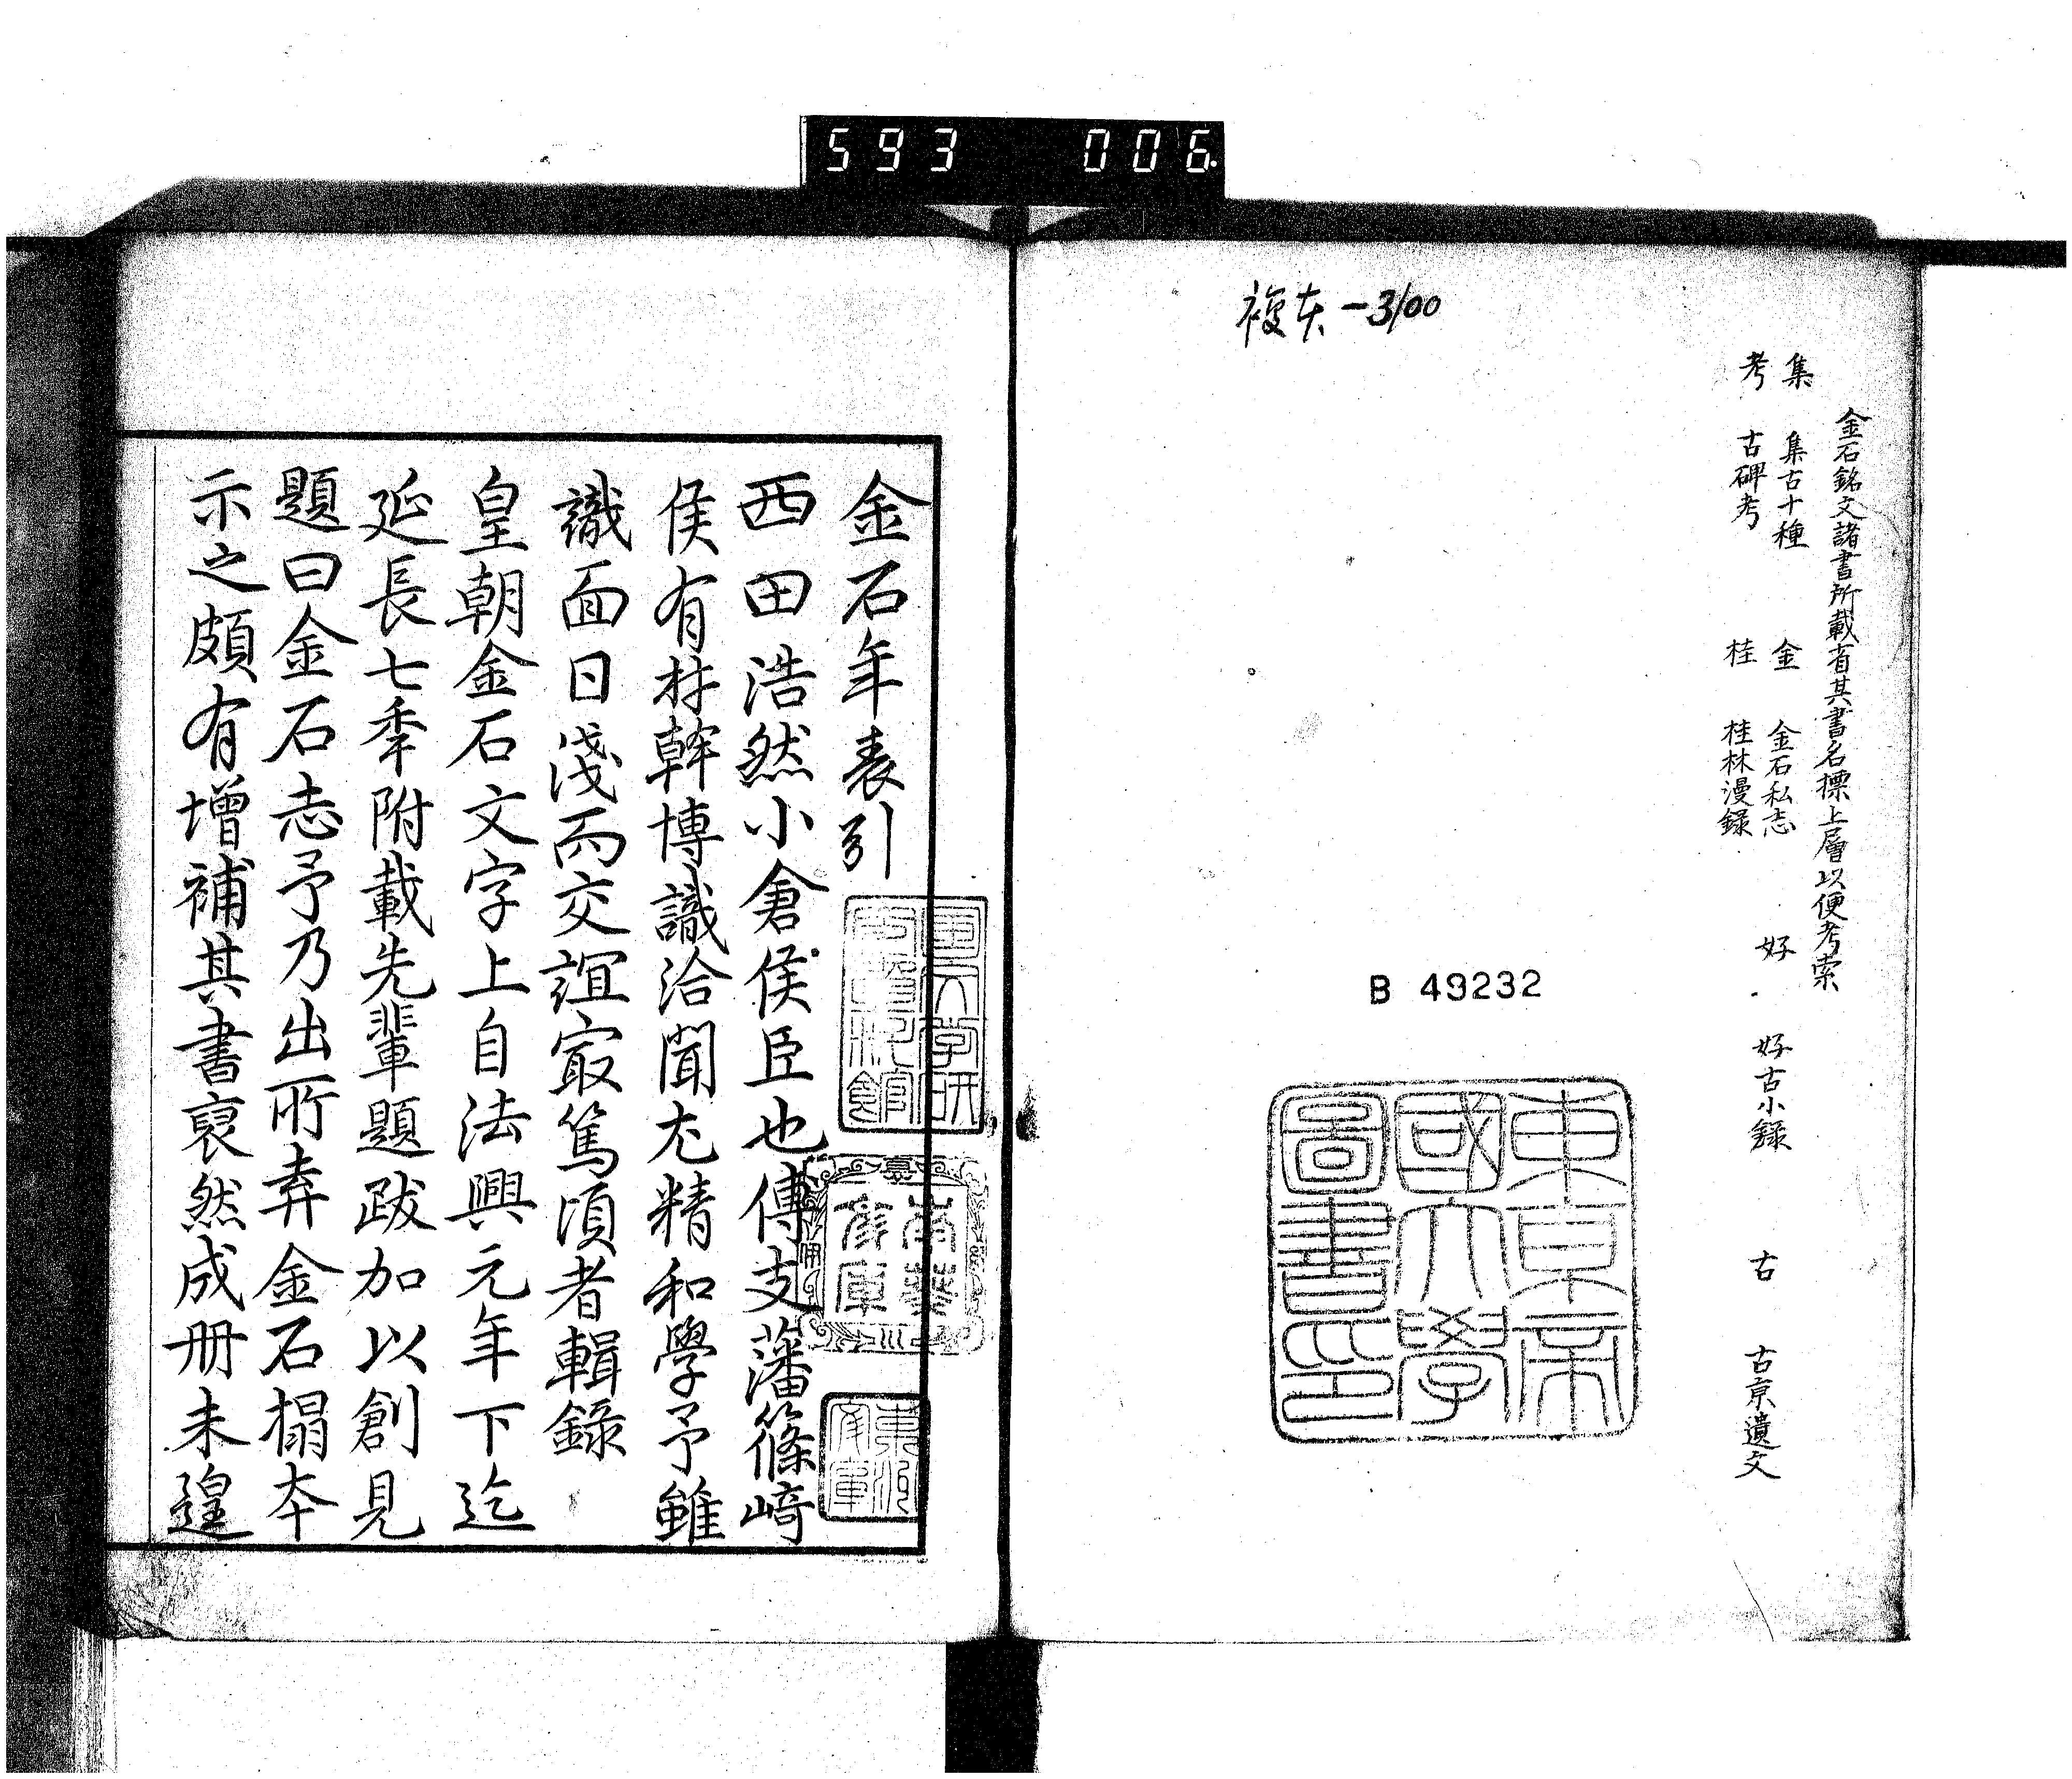 593 006.
複本-3100
金石銘文諸書所載省其書名標上層以便考索
集 集古十種 金 金石私志 好 好古小録 古 古京遺文
考 古碑考 桂 桂林漫録
B 49232
東京帝
國大學
圖書印
金石年表引
西田浩然小倉侯臣也傅支藩篠﨑
侯有材幹博識洽聞尤精和學予雖
識面日淺而交誼㝡篤頃者輯錄
皇朝金石文字上自法興元年下迄
延長七季附載先輩題跋加以創見
題曰金石志予乃出所弆金石榻本
示之頗有增補其書裒然成冊未遑